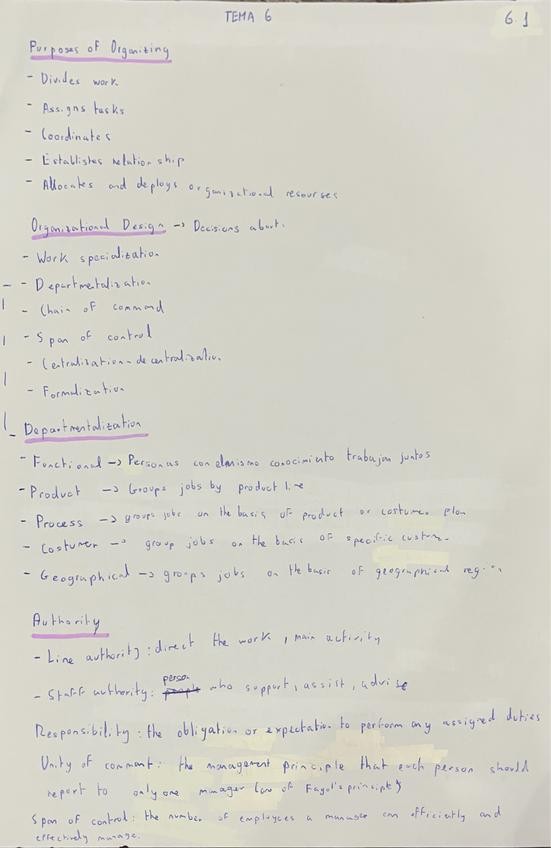 TEMA 6
6.1
Purposes of Organizing
- Divides work
- Assigns tasks
- Coordinates
- Establishes relationship
- Allocates and deploys organizational resourses
Organizational Design -> Decisions about:
- Work specialization
- Departmentalization
- Chain of command
- Span of control
- Centralization-decentralization
- Formalization
- Departmentalization
- Functional -> Personas con el mismo conocimiento trabajan juntos
- Product -> Groups jobs by product line
- Process -> groups jobs on the basis of product or costumer
- Costumer -> group jobs on the basis of specific
- Geographical -> groups jobs on the basis of geographical region
Authority
- Line authority: direct the work, main activity
- Staff authority: person who support, assist, advise
Responsibility: the obligation or expectation to perform any assigned duties
Unity of command: the management principle that each person should
report to only one manager (one of Fayol's principles)
Span of control: the number of employees a manager can efficiently and
effectively manage.